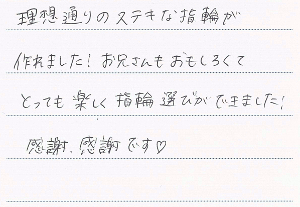 理想通りのステキな指輪が
作れました！お兄さんもおもしろくて
とっても楽しく指輪選びができました！
感謝、感謝です♡